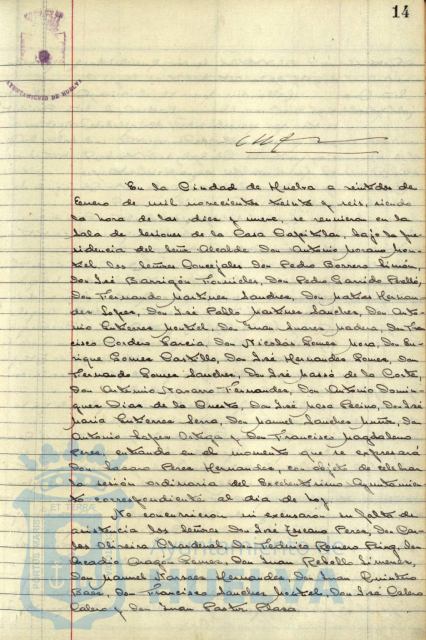 14
AYUNTAMIENTO DE HUELVA
En la Ciudad de Huelva a veintidos de
Enero de mil novecientos treinta y seis, siendo
la hora de las diez y nueve, se reunieron en la
Sala de sesiones de la Casa Capitular, bajo la Pre-
sidencia del Señor Alcalde Don Antonio Moreno Mon-
tiel los Señores Concejales Don Pedro Borrero Limón,
Don José Barrigón Fornieles, Don Pedro Garrido Perelló,
Don Fernando Martinez Sanchez, Don Matias Hernan-
dez Lopez, Don José Pablo Martinez Sanchez, Don Anto-
nio Gutierrez Montiel, Don Juan Suarez Madera, Don Fran-
cisco Cordero Garcia, Don Nicolás Gomez Mora, Don En-
rique Gomez Castillo, Don José Hernandez Gomez, Don
Fernando Gomez Sanchez, Don José Massó de la Corte,
Don Antonio Navarro Fernandez, Don Antonio Domin-
guez Diaz de la Puerta, Don José Mesa Pecino, Don José
Maria Gutierrez Serra, Don Manuel Sanchez Muñiz, Don
Antonio Lopez Ortega y Don Francisco Magdaleno
Perez, entrando en el momento que se expresará
Don Lazaro Perez Hernandez, con objeto de celebrar
la sesión ordinaria del Excelentisimo Ayuntamien-
to correspondiente al dia de hoy.
No concurrieron ni excusaron su falta de
asistencia los Señores Don José Escano Perez, Don Car-
los Oliveira Don Federico Romero Don
Arcadio Aragón Gomez, Don Juan Rebollo Jimenez,
Don Manuel Narvaez Hernandez, Don Juan Quintero
Baez, Don Francisco Sanchez Montiel, Don José Calero
Calero y Don Juan Pastor Plaza